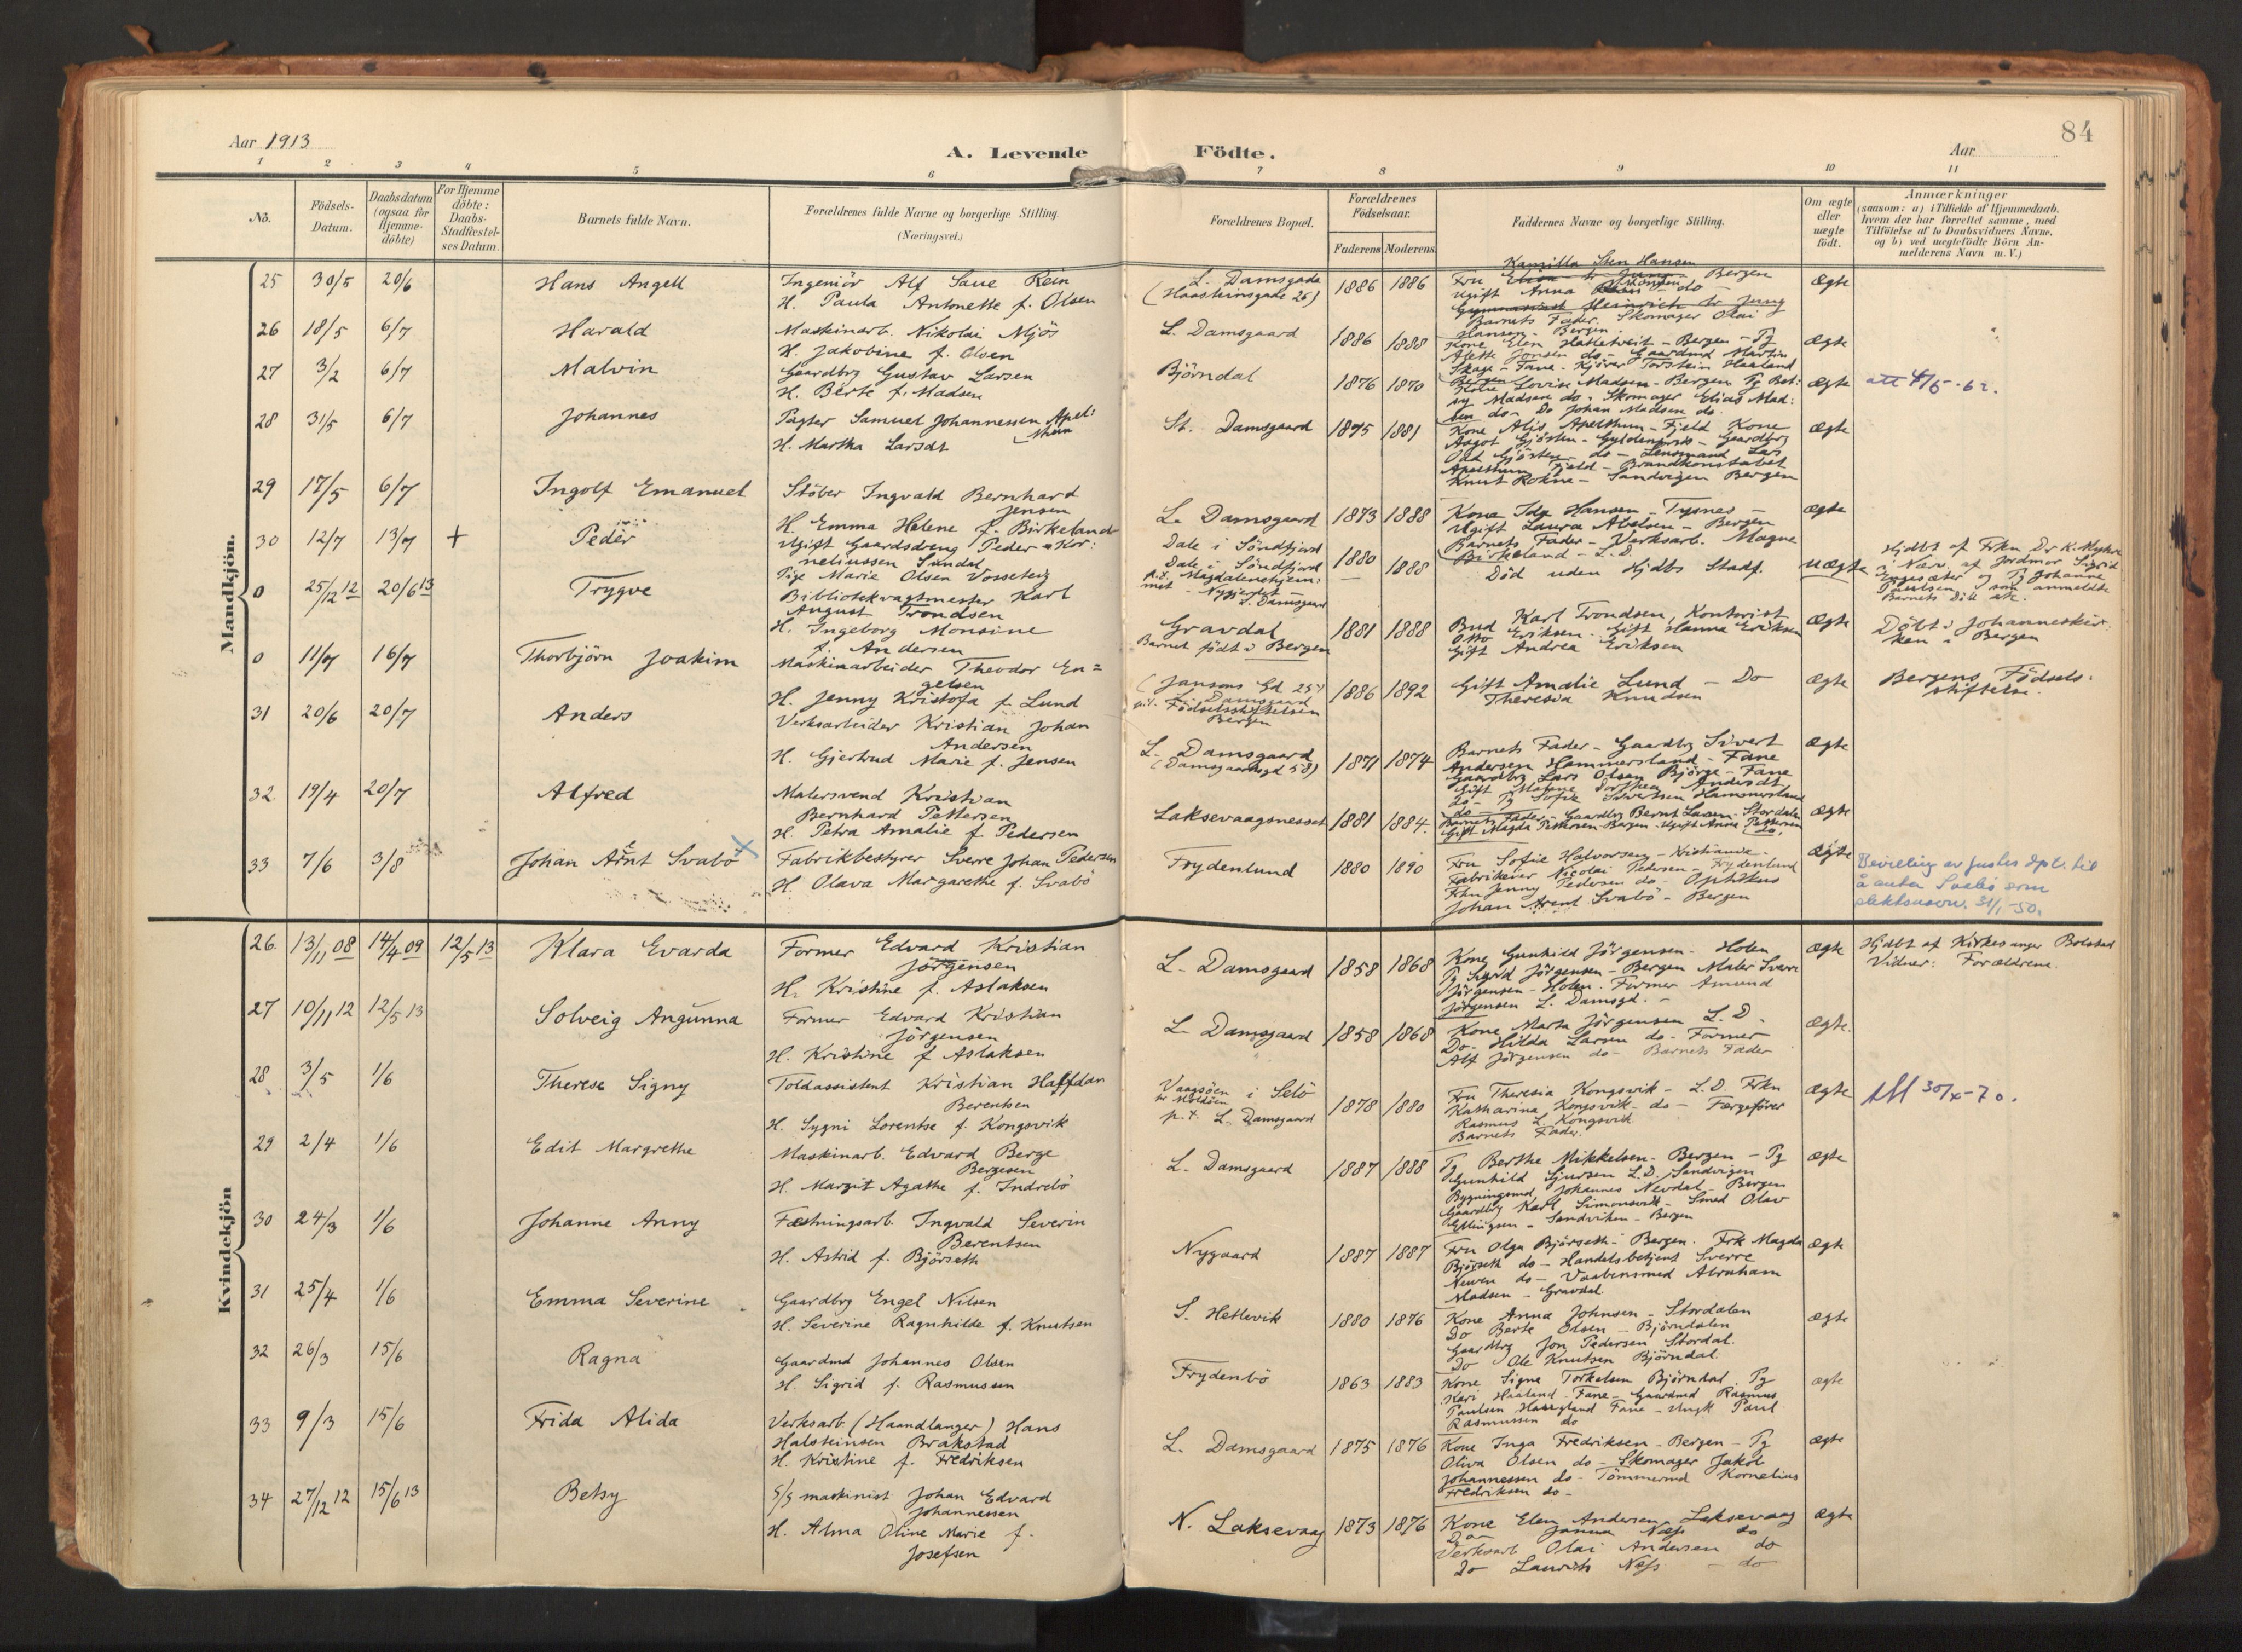 Aar 1913
A. Levende
Födte.
Aar
84
1 2 3 4 5 6 7 8 9 10 11
No.
Födsels-
Datum.
Daabsdatum
(ogsaa for
Hjemme-
döbte)
For Hjemme
döbte:
Daabs-
Stadfæstel-
ses Datum.
Barnets fulde Navn.
Forældrenes fulde Navne og borgerlige Stilling.
(Næringsvei.)
Forældrenes Bopæl.
Forældrenes
Födselsaar.
Faderens Moderens
Faddernes Navne og borgerlige Stilling.
Om ægte
eller
uægte
födt.
Anmærkninger
(saasom: a) i Tilfælde af Hjemmedaab,
hvem der har forrettet samme, med
Tilföielse af to Daabsvidners Navne,
og b) ved uægtefödte Börn An-
melderens Navn m. V.)
Mandkjön.
25 30/5 20/6 Hans Angell
Ingeniör Alf Saue Rein
H. Paula Antonette f. Olsen
L. Damsgade
(Haasteinsgade 26)
1886 1886
Kamilla Sten Hansen
Fru Bergen
Ugift Anna do
Barnets Fader. Skomager Olai
Hansen - Bergen.
Ægte
26 18/5 6/7 Harald
Maskinarb. Nikolai Mjös
H. Jakobine f. Olsen
L. Damsgaard
1886 1888
Kone Elen Hatletveit - Bergen - Pg
Alette Jonsen do - Gaardmd Martin
Skage - Fane - Kjörer Torstein Haaland
Bergen
ægte
27 3/2 6/7 Malvin
Gaardbrg Gustav Larsen
H. Berte f. Madsen
Björndal
1876 1870
Kone Lovise Madsen - Bergen Pg Bet:
sy Madsen do - Skomager Elias Mad:
sen do - Do Johan Madsen do.
ægte
att 4/5-62.
28 31/5 6/7 Johannes
Pagter Samuel Johannessen Apel:
thun
H. Martha Larsdt
St. Damsgaard
1875 1881
Kone Alis Apelthun - Fjeld Kone
Aagot Gjösten - Gyldenpris - Gaardbrg
Odd Gjösten do - Lensmand Lars
Apelthun Fjeld - Brandkonstabel
Knut Rokne - Sandvigen Bergen
ægte
29 17/5 6/7 Ingolf Emanuel
Stöber Ingvald Bernhard
Jensen
H. Emma Helene f. Birkeland
L. Damsgaard
1873 1888
Kone Ida Hansen - Tysnes -
Ugift Laura Abelsen - Bergen
Barnets Fader - Verksarb. Magne
Birkeland - L.D.
ægte
30 12/7 13/7 + Peder
Ugift Gaardsdreng Peder Kor:
neliussen Sundal
Pige Marie Olsen Vosseteig
Dale i Söndfjord
Dale i Söndfjord
p.t. Magdalenehjem:
met - Nygjerdet -
L. Damsgaard
1880 1888
Död uden Hjdbs Stadf.
uægte
Hjdbt af Frkn Dr K. Myhre
i Nærv. af Jordmor Sigrid
og Pg Johanne
Paulsen, som anmeldte
Barnets Död etc.
0 25/12 12 20/6 13 Trygve
Bibliotekvagtmester Karl
August Trondsen
H. Ingeborg Monsine
f. Andersen
Gravdal
Barnet födt i Bergen
1881 1888
Bud Karl Trondsen, Kontorist
Otto Eriksen. Gift Hanna Eriksen
Gift Andrea Eriksen
ægte
Döbt i Johanneskir:
ken i Bergen
0 11/7 16/7 Thorbjörn Joakim
Maskinarbeider Theodor En=
gelsen
H. Jenny Kristofa f. Lund
(Jansons Gd 25)
L. Damsgaard
p.t. Födselsstiftelsen
Bergen
1886 1892
Gift Amalie Lund - Do
Theresia Knudsen
ægte
Bergens Födsels:
stiftelse.
31 20/6 20/7 Anders
Verksarbeider Kristian Johan
Andersen
H. Gjertrud Marie f. Jensen
L. Damsgaard
(Damsgaardsgd 58)
1871 1874
Barnets Fader - Gaardbrg Sivert
Andersen Hammersland - Fane
Gaardbrg Lars Olsen Björge - Fane
Gift Malene Dorthea Andersdt
do - Pg Sofie Sivertsen Hammersland
do
ægte
32 19/4 20/7 Alfred
Malersvend Kristian
Bernhard Pettersen
H. Petra Amalie f Pedersen
Laksevaagsnesset
1881 1884.
Barnets Fader - Gaardbrg Bernt Larsen - Stordalen
Gift Magda Pettersen Bergen. Ugift Anna Pettersen
do.
ægte
33 7/6 3/8 Johan Arnt Svabö
Fabrikbestyrer Sverre Johan Pedersen
H. Olava Margarethe f. Svabö
Frydenlund
1880 1890
Fru Sofie Halvorsen - Kristiania -
Fabrikeier Nicolai Pedersen - Frydenlund
Frkn Jenny Pedersen do - Optikus
Johan Arent Svabö - Bergen
Ægte
Bevilling av Justis dpt. til
å anta Svabö som
slektsnavn. 31/1-50.
Kvindekjön
26. 13/11 08 14/4 09 12/5 13 Klara Evarda
Former Edvard Kristian
Jörgensen
H. Kristine f. Aslaksen
L. Damsgaard
1858 1868
Kone Gunhild Jörgensen - Holen
Pg Sigrid Jörgensen - Bergen Maler Sverre
Jörgensen - Holen. Former Amund
Jörgensen L. Damsgd. -
ægte
Hjdbt af Kirkesanger Bolstad
Vidner: Forældrene.
27 10/11 12 12/5 13 Solveig Angunna
Former Edvard Kristian
Jörgensen
H. Kristine f Aslaksen
L. Damsgaard
1858 1868
Kone Marta Jörgensen L.D.
Do - Hilda Larsen do - Former
Alf Jörgensen do - Barnets Fader
ægte.
28 3/5 1/6 Therese Signy
Toldassistent Kristian Halfdan
Berentsen
H. Sygni Lorentse f. Kongsvik
Vaagsöen i Selö
p.t. L. Damsgaard
1878 1880
Fru Theresia Kongsvik - L.D. Frkn
Katharina Kongsvik - do - Færgeförer
Rasmus L. Kongsvik
Barnets Fader.
ægte
att 30/x-70.
29 2/4 1/6 Edit Margrethe
Maskinarb. Edvard Berge
Bergesen
H. Margit Agathe f. Indrebö
L. Damsgaard
1887 1888
Pg Berthe Mikkelsen - Bergen - Pg
Gunhild Sjursen L.D. Sandvigen
Bygningsmd Johannes Nevdal - Bergen
Gaardbrg Karl Simonsvik - Smed Olav
Ellingsen - Sandviken - Bergen
ægte
30 24/3 1/6 Johanne Anny
Fæstningsarb. Ingvald Severin
Berentsen
H. Astrid f. Björseth
Nygaard
1887 1887
Fru Olga Björseth - Bergen. Frk Magda
Björseth do - Handelsbetjent Sverre
Neuen do - Vaabensmed Abraham
Madsen - Gravdal.
ægte
31 25/4 1/6 Emma Severine
Gaardbrg Engel Nilsen
H. Severine Ragnhilde f. Knutsen
S. Hetlevik
1880 1876
Kone Anna Johnsen - Stordalen
Do Berte Olsen - Björndalen
Gaardbrg Jon Pedersen Stordal.
Do Ole Knutsen Björndal.
ægte
32 26/3 15/6 Ragna
Gaardmd Johannes Olsen
H. Sigrid f. Rasmussen
Frydenbö
1863 1883
Kone Signe Torkelsen Björndal. Pg
Kari Haaland - Fane - Gaardmd Rasmus
Paulsen Haugland Fane - Ungk Paul
Rasmussen do
ægte
33 9/3 15/6 Frida Alida
Verksarb (Haandlanger) Hans
Halsteinsen Brakstad
H. Kristine f. Fredriksen
L. Damsgaard
1875 1876
Kone Inga Fredriksen - Bergen - Pg
Oliva Olsen do - Skomager Jakob
Johannessen do - Tömmermd Kornelius
Fredriksen do -
ægte
34 27/12 12 15/6 13 Betsy
S/S maskinist Johan Edvard
Johannessen
H. Alma Oline Marie f.
Josefsen
N. Laksevaag
1873 1876
Kone Elen Andersen Laksevaag
Do Janna Næss do
Verksarb Olai Andersen do
Do Laurits Næss - do
Ægte